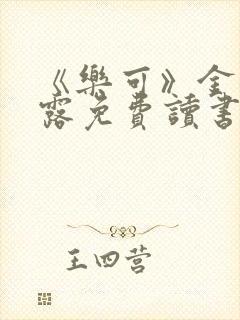 《樂可》全
露免費讀書
王四营